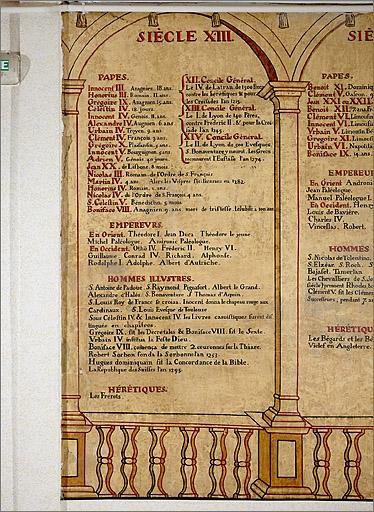 E
SIÈCLE XIII
PAPES.
Innocent III. Anagnien. 18. ans.
Honorius III. Romain. 11. ans.
Gregoire IX. Anagnien. 15. ans.
Célestin IV. 18. jours.
Innocent IV. Genois. 11. ans.
Alexandre IV. Anagnien. 6. ans
Urbain IV. Troyen. 3. ans
Clément IV. François 3. ans.
Grégoire X. Plaisantin. 4. ans.
Innocent V. Bourguignon. 5. m.
Adrien V. Génois. 40. jours.
Jean XX. de Lisbone. 8. mois.
Nicolas III. Romain.
Martin IV. 4. ans. Alors les Vêpres Siciliennes en 1282.
Honorius IV. Romain. 2. ans.
Nicolas IV. de l'Ordre de S. François 4. ans.
S. Celestin V. Bénédictin. 5. mois
Boniface VIII. Anagnien. 9. ans. mort de tristesse.
XII. Concile Général.
Le IV. de Latran. de 1500 Evêq.
contre les hérétiques & pour
les Croisades l'an 1215.
XIII. Concile Général.
Le I. de Lyon. de 140 Pères,
contre Fréderic II. & pour la Croi-
sade l'an 1245.
XIV. Concile Général.
Le II. de Lyon. de 500 Evêques,
S. Bonaventure y mourut. Les Grecs
reconnurent l'Eglise l'an 1274.
EMPEREURS.
En Orient. Théodore I. Jean Duca Théodore le jeune
Michel Paléologue. Andronic Paléologue.
En Occident. Othon IV. Fréderic II. Henry VI.
Guillaume. Conrad IV. Richard. Alphonse.
Rodolphe I. Adolphe. Albert d'Autriche.
HOMMES ILLUSTRES.
S. Antoine de Padoue. S. Raymond. Pignafort. Albert le Grand.
Alexandre d'Halès. S. Bonaventure. S. Thomas d'Aquin.
S. Louis Roy de France se croisa. Innocent donna le chapeau rouge aux
Cardinaux. S. Louis Evêque de Toulouse
Sous Célestin IV & Innocent IV. les Livres canoniques furent di-
tingués en chapitres.
Grégoire IX. fit les Decrétales & Boniface VIII. fit le Sexte.
Urbain IV. institua la Feste Dieu.
Boniface VIII. comença de mettre 2 couronnes sur la Thiare.
Robert Sorbon fonda la Sorbonne l'an 1253.
Hugues dominiquain fit la Concordance de la Bible.
La Republique des Suisses l'an 1295.
HÉRÉTIQUES.
Les Frerots
SIÈ
PAPES,
Benoit XI. Dominiq
Clément V.
Jean XXI ou XXII.
Benoit XII.
Clément VI. Limousin
Innocent VI. Limous
Urbain V. Limousin Bén
Grégoire XI. Limo
Urbain VI. Napolita
Boniface IX. 14. ans.
EMPEREU
En Orient. Androni
Jean Paléologue.
Manuel Paléologue I.
En Occident. Henry
Louis de Bavière.
Charles IV.
Vinceslas. Robert.
HOMMES
S. Nicolas de Tolentin.
S. Elzéar. S. Roch.
Bajazet. Tamerlan.
Les Chevalliers de S. Je
Clément V. fit les Cléme
Successeurs, pendant 7
HÉRÉTIQU
Les Begards et les Bé
Viclef en Angleterre.